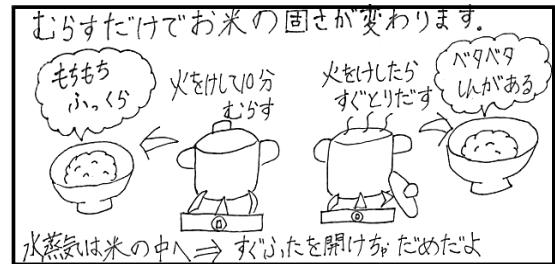 むらすだけでお米の固さが変わります。
もちもち
ふっくら
火をけして10分
むらす
火をけしたら
すぐとりだす
ベタベタ
しんがある
水蒸気は米の中へ⇒すぐふたを開けちゃだめだよ